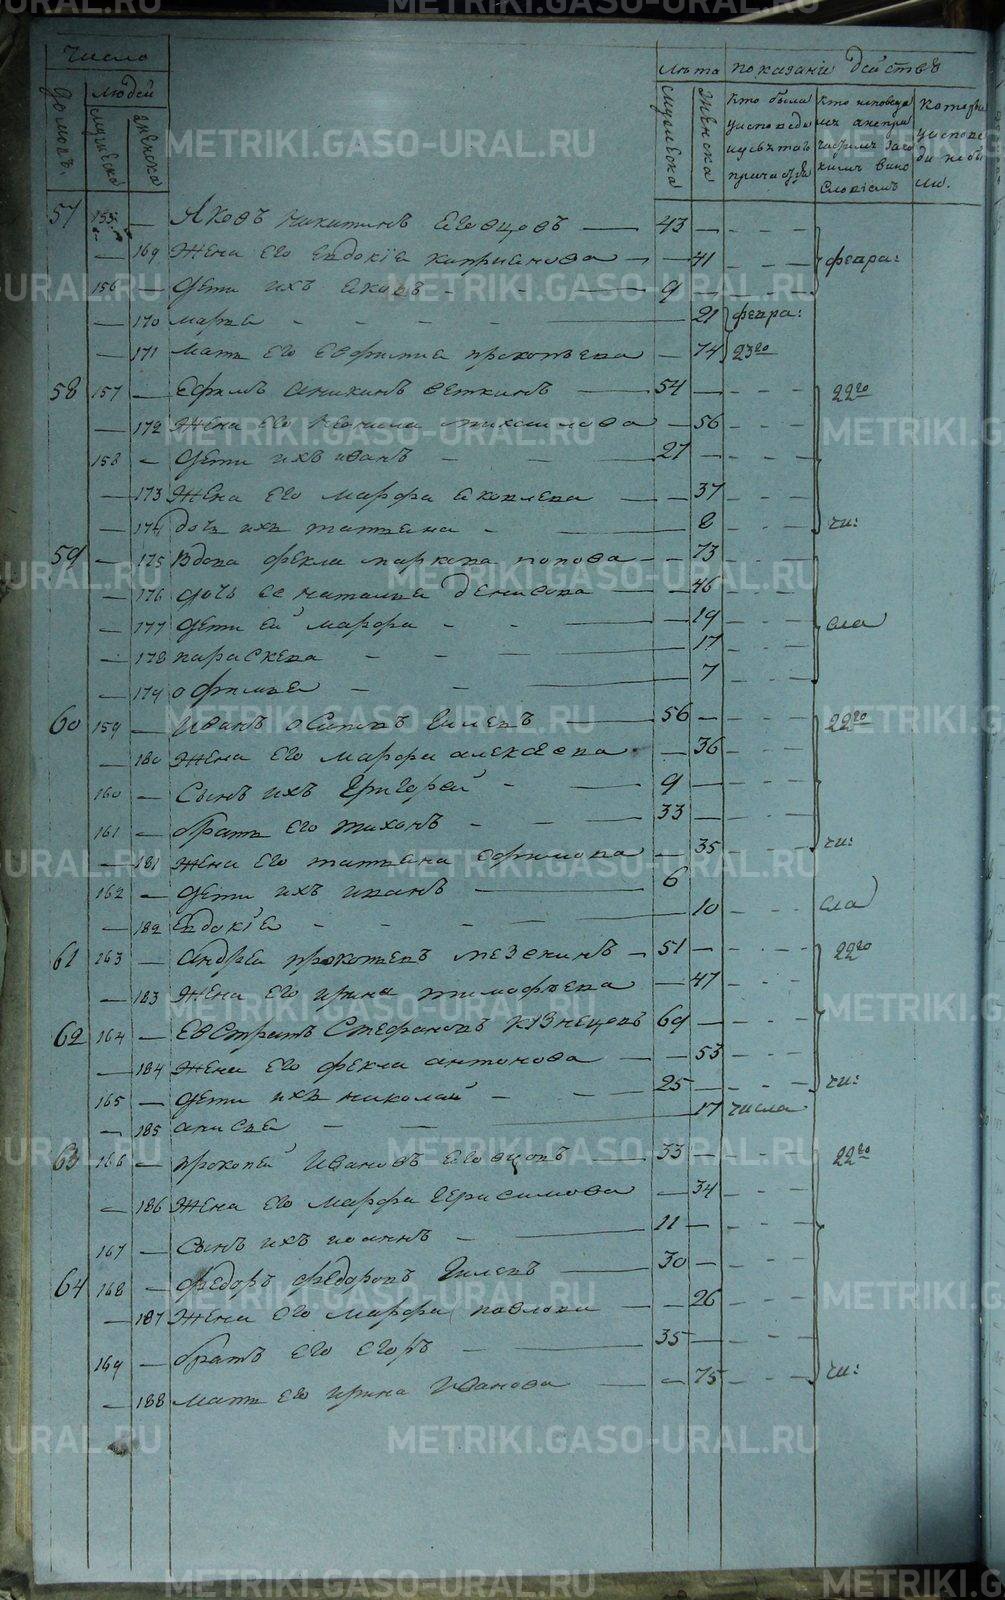 число
людей
домовъ.
мужеска
женска
лѣта
мужеска
женска
показаніи действъ
кто были
у исповеди
и у свѣтаго
причастія
кто исповеда
лис
ким вино
словіемъ
которыи
у испове
ди не бы
ли.
57 155 — Яковъ никитинъ Еговцовъ — 43 —
— 169 жена его евдокіа каприанова — — 41 февра:
156 — дети ихъ акопъ — 9 —
— 170 марѳа — 21 февра:
— 171 мать его евфимиа прокопьева — 74 23го
58 157 — Ефимъ аникинъ веткинъ — 54 — 22го
— 172 жена его михаилова — 56
158 — дети ихъ иванъ — 27 —
— 173 жена его марфа аковлева — — 37
— 174 дочь ихъ татьана — 8 чи:
59 — 175 вдова фекла маркова попова — — 73
— 176 дочь ее наталиа денисова — — 46
— 177 дети ей марфа — — 19 сла
— 178 параскева — 17
— 179 офимьа — 7
60 159 — иванъ осиповъ Гилевъ — 56 — 22го
— 180 жена его марфа алексеева — 36
160 — сынъ ихъ Григорей — 9 —
161 — братъ его тихонъ — 33 —
— 181 жена его татьана ефимова — 35 чи:
162 — дети ихъ иванъ — 6
— 182 евдокіа — 10 сла
61 163 — андреа прокопьевъ мезенинъ — 51 — 22го
— 183 жена его ирина тимофѣева — 47
62 164 — Евстратъ Стефановъ кузнецовъ 69 —
— 184 жена его фекла антонова — — 53
165 — дети ихъ николай — 25 — чи:
— 185 анисьа — 17 числа
63 166 — прокопей ивановъ еговцовъ — 33 — 22го
— 186 жена его марфа герасимова — 34
167 — сынъ ихъ иоаннъ — 11 —
64 168 — федоръ федоровъ Гилевъ — 30 —
— 187 жена его марфа павлова — — 26
169 — братъ его егоръ — 35 —
— 188 мать его ирина иванова — — 75 чи:
METRIKI.GASO-URAL.RU